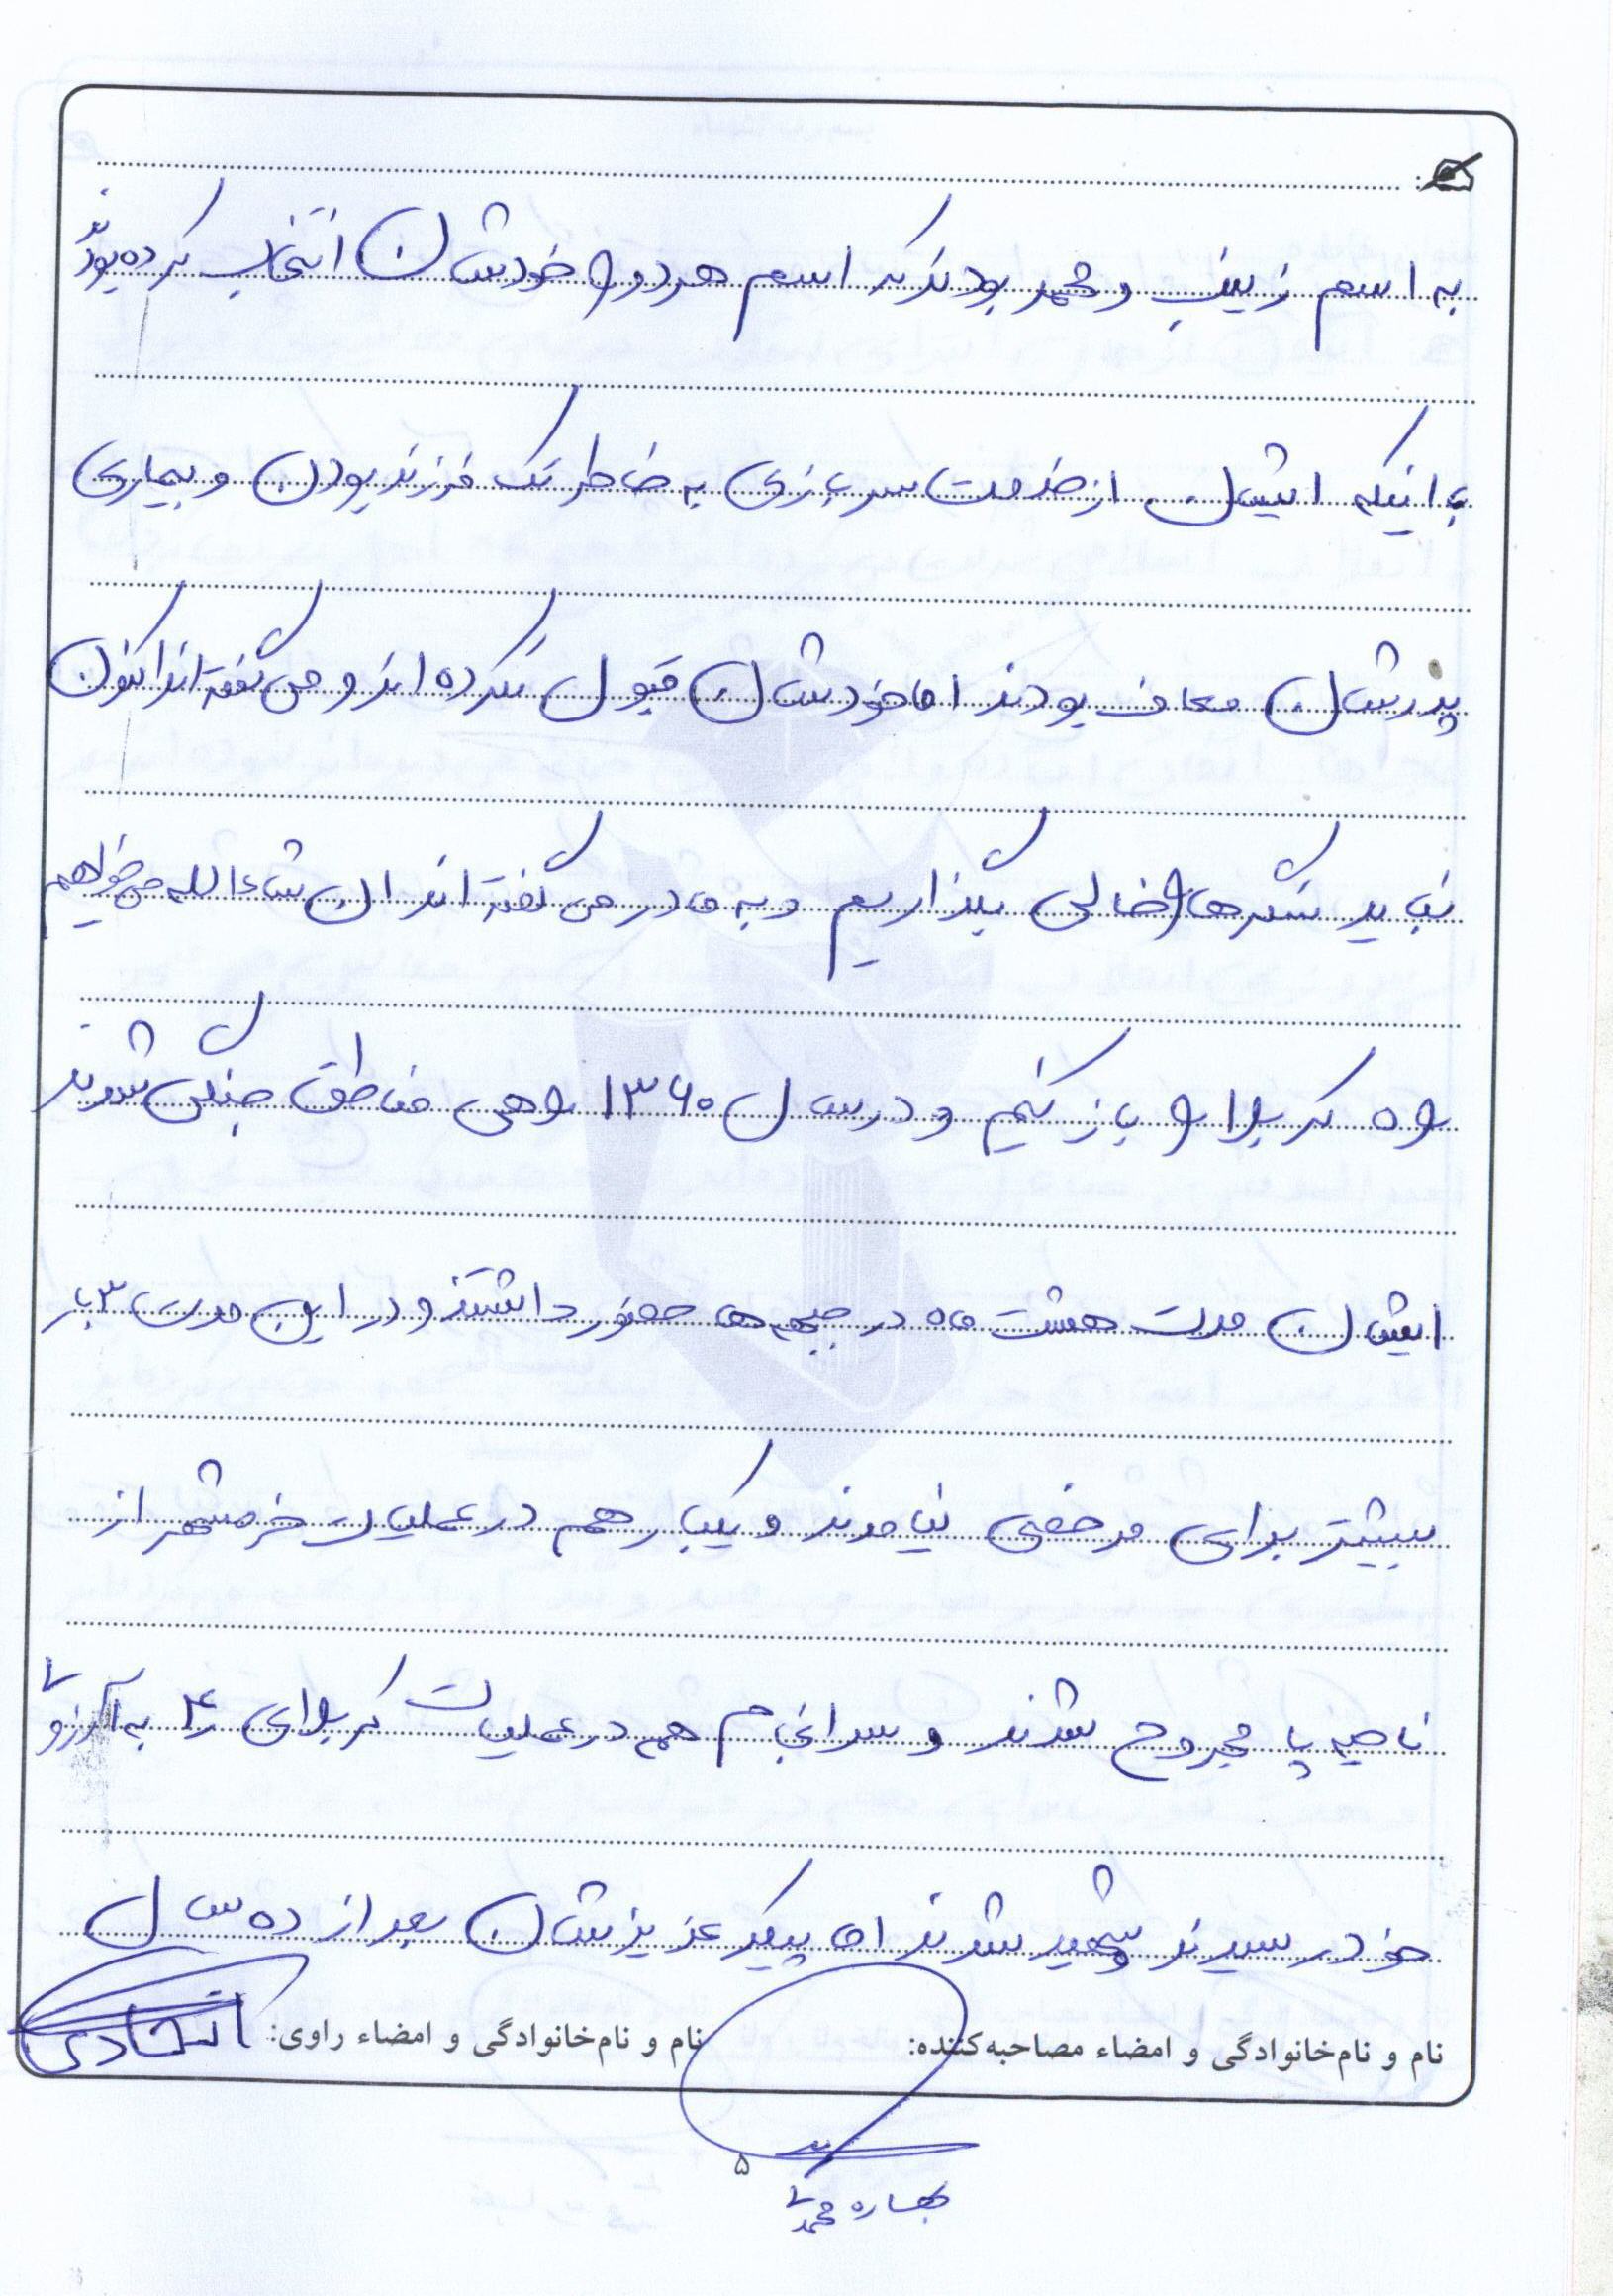 به اسم زینب و محمد بودند که اسم هر دو را خودشان انتخاب کرده بودند
با اینکه ایشان از خدمت سربازی به خاطر تک فرزند بودن و بیماری
پدرشان معاف بودند اما خودشان قبول نکرده اند و می گفته اند اکنون
نباید سنگرها را خالی بگذاریم و به مادر می گفته اند ان شاءالله می خواهیم
راه کربلا را باز کنیم و در سال ۱۳۶۰ راهی مناطق جنگی شدند
ایشان مدت هشت ماه در جبهه ها حضور داشتند و در این مدت ۳ بار
بیشتر برای مرخصی نیامدند و یکبار هم در عملیات خرمشهر از
ناحیه پا مجروح شدند و سرانجام هم در عملیات کربلای ۴ به آرزوی
خود رسیدند و شهید شدند اما پیکر عزیزشان بعد از ده سال
نام و نام‌خانوادگی و امضاء مصاحبه‌کننده: نام و نام‌خانوادگی و امضاء راوی:
۵
محمدی